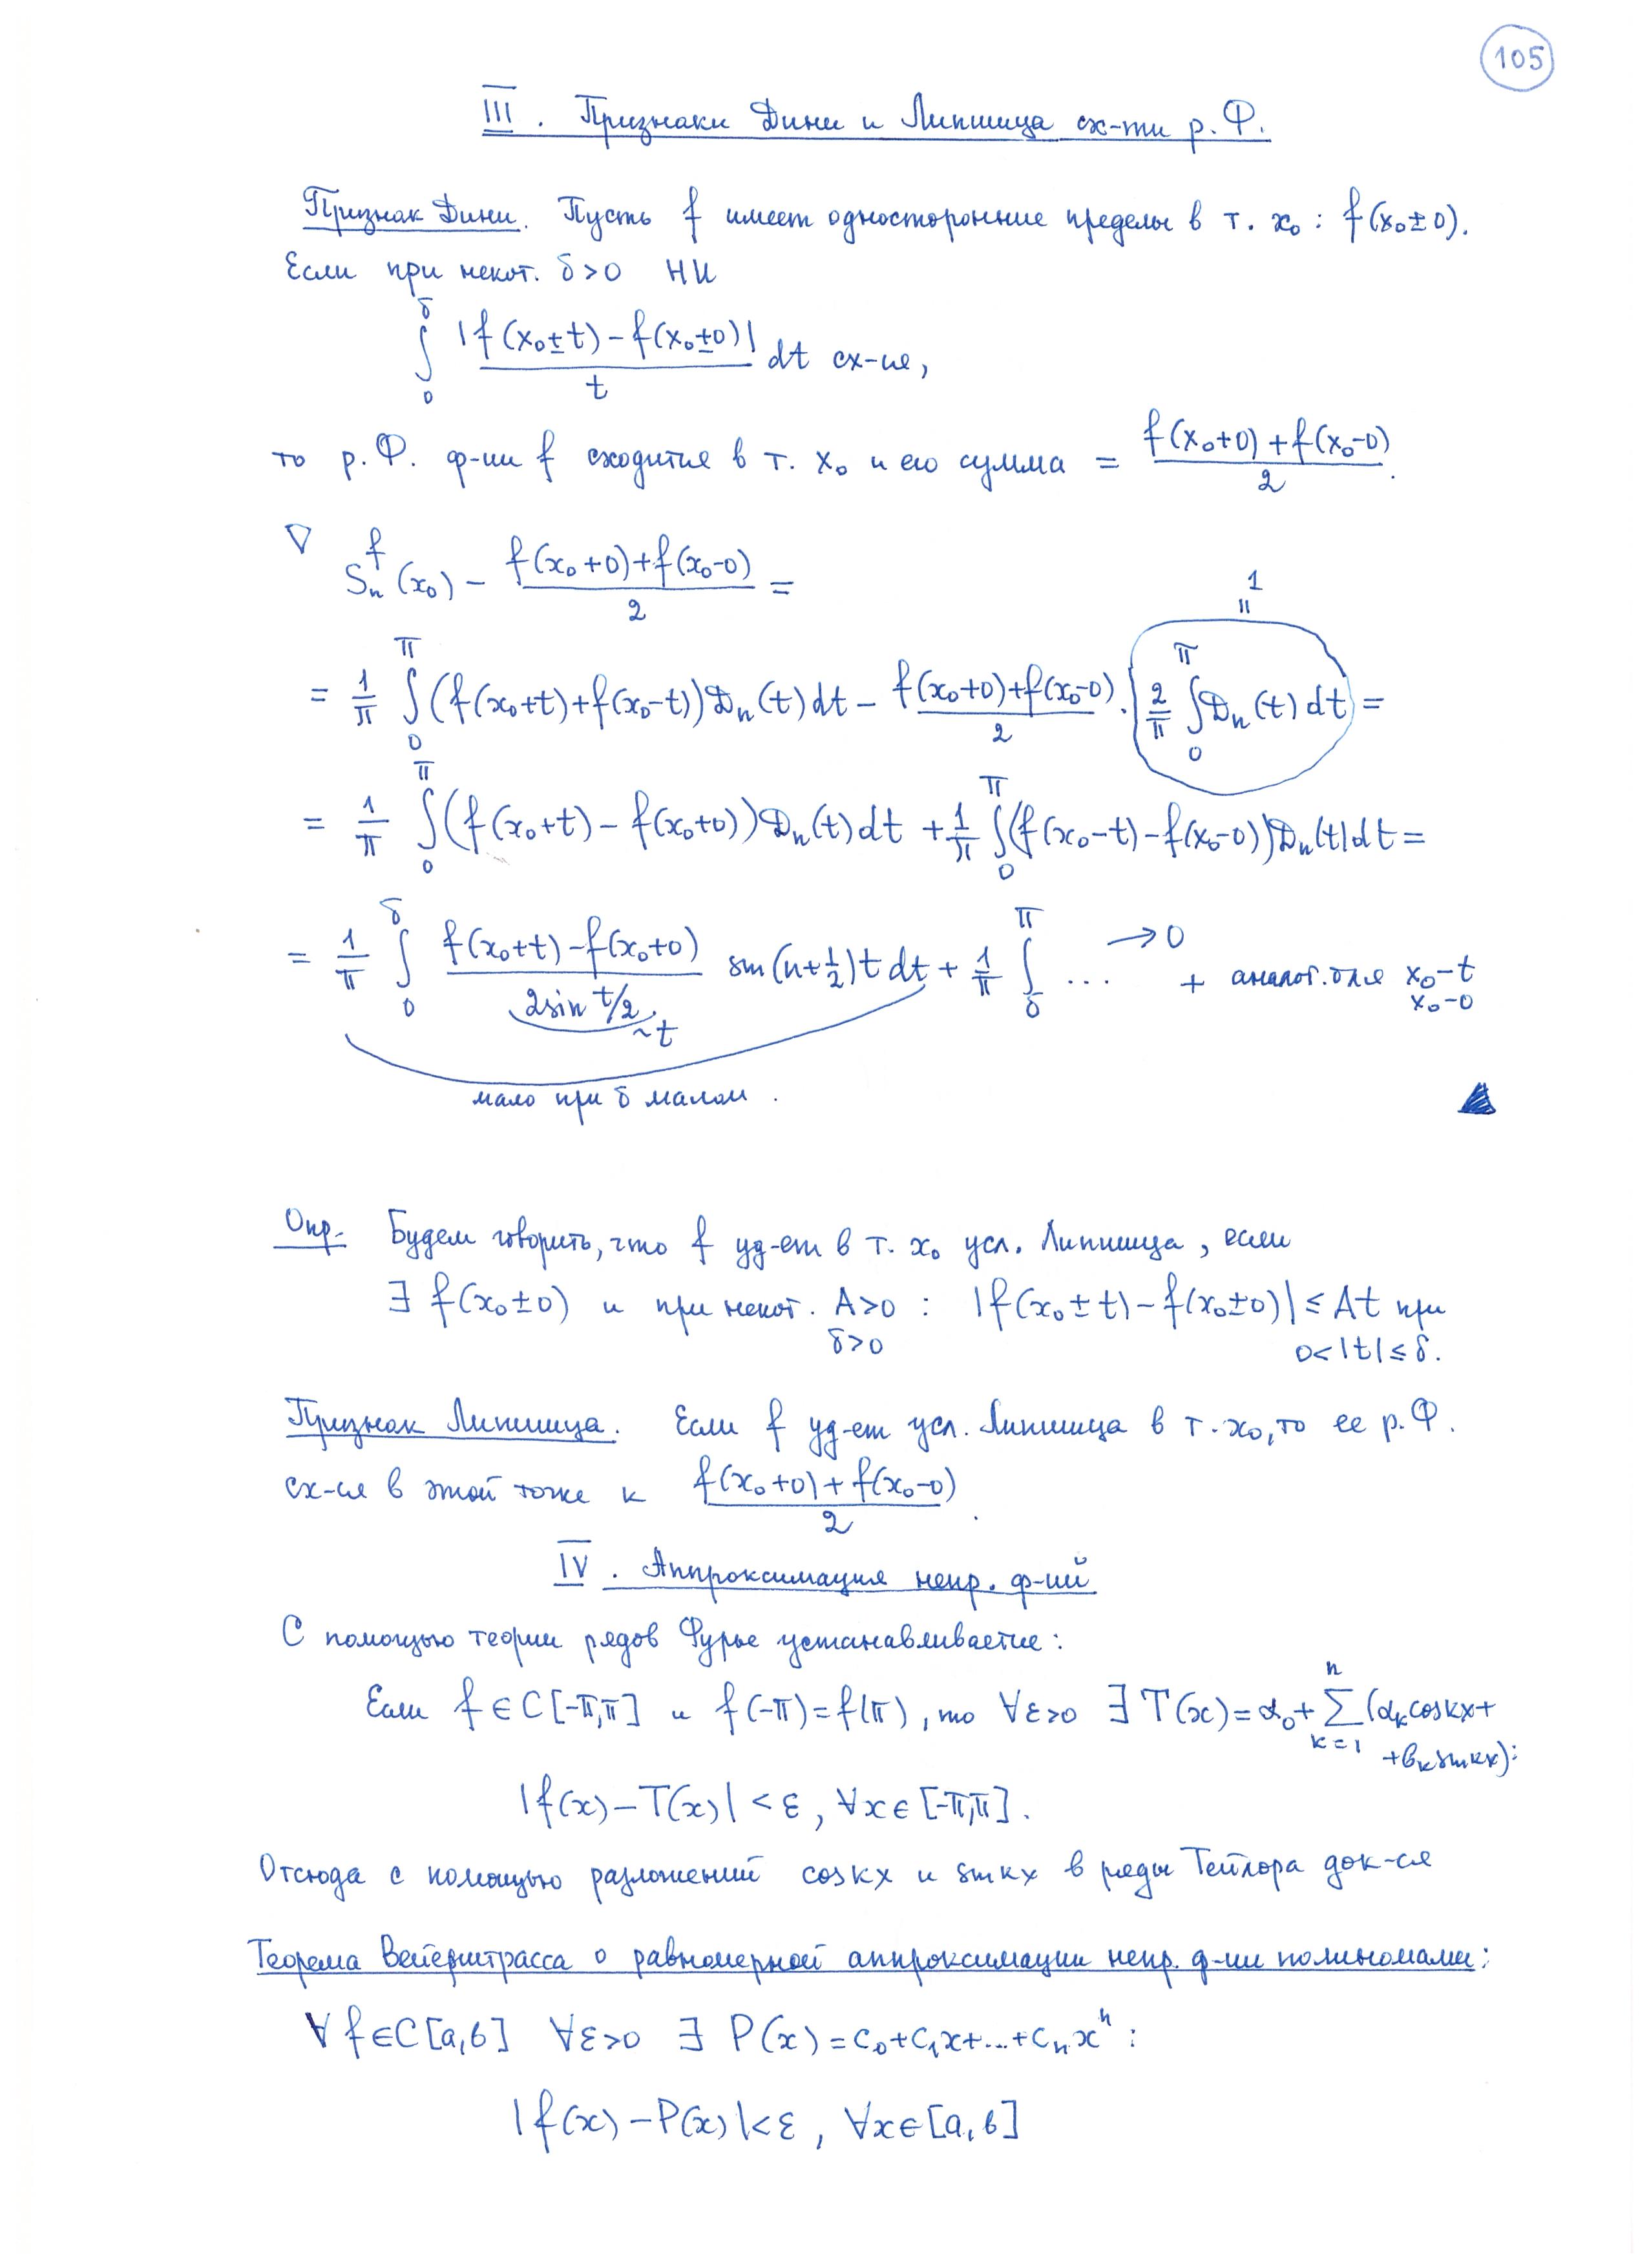 105
III. Признаки Дини и Липшица сх-ти р.Ф.
Признак Дини. Пусть f имеет односторонние пределы в т. x₀ : f(x₀±0).
Если при некот. δ>0 НИ
∫₀^δ |f(x₀±t) − f(x₀±0)| / t dt сх-ся,
то р.Ф. ф-ии f сходится в т. x₀ и его сумма = (f(x₀+0)+f(x₀-0))/2.
∇ Sₙᶠ(x₀) − (f(x₀+0)+f(x₀-0))/2 =
= 1/π ∫₀^π (f(x₀+t)+f(x₀-t)) Dₙ(t) dt − (f(x₀+0)+f(x₀-0))/2 · (2/π ∫₀^π Dₙ(t) dt) = 
1
=
= 1/π ∫₀^π (f(x₀+t) − f(x₀+0)) Dₙ(t) dt + 1/π ∫₀^π (f(x₀-t) − f(x₀-0)) Dₙ(t) dt =
= 1/π ∫₀^δ (f(x₀+t) − f(x₀+0)) / (2sin t/2) sin(n+½)t dt + 1/π ∫_δ^π ... → 0 + аналог. для x₀-t
x₀-0
~t
мало при δ малом.
Опр. Будем говорить, что f уд-ет в т. x₀ усл. Липшица, если
∃ f(x₀±0) и при некот. A>0 : |f(x₀±t) − f(x₀±0)| ≤ At при
δ>0 0<|t|≤δ.
Признак Липшица. Если f уд-ет усл. Липшица в т. x₀, то ее р.Ф.
сх-ся в этой точке к (f(x₀+0)+f(x₀-0))/2.
IV. Аппроксимация непр. ф-ий
С помощью теории рядов Фурье устанавливается:
Если f∈C[-π,π] и f(-π)=f(π), то ∀ε>0 ∃ T(x)=α₀+∑ₖ₌₁ⁿ(αₖcoskx+
+вₖsinkx):
|f(x)−T(x)|<ε, ∀x∈[-π,π].
Отсюда с помощью разложений coskx и sinkx в ряды Тейлора док-ся
Теорема Вейерштрасса о равномерной аппроксимации непр. ф-ии полиномами:
∀f∈C[a,в] ∀ε>0 ∃ P(x)=c₀+c₁x+...+cₙxⁿ:
|f(x)−P(x)|<ε, ∀x∈[a,в]